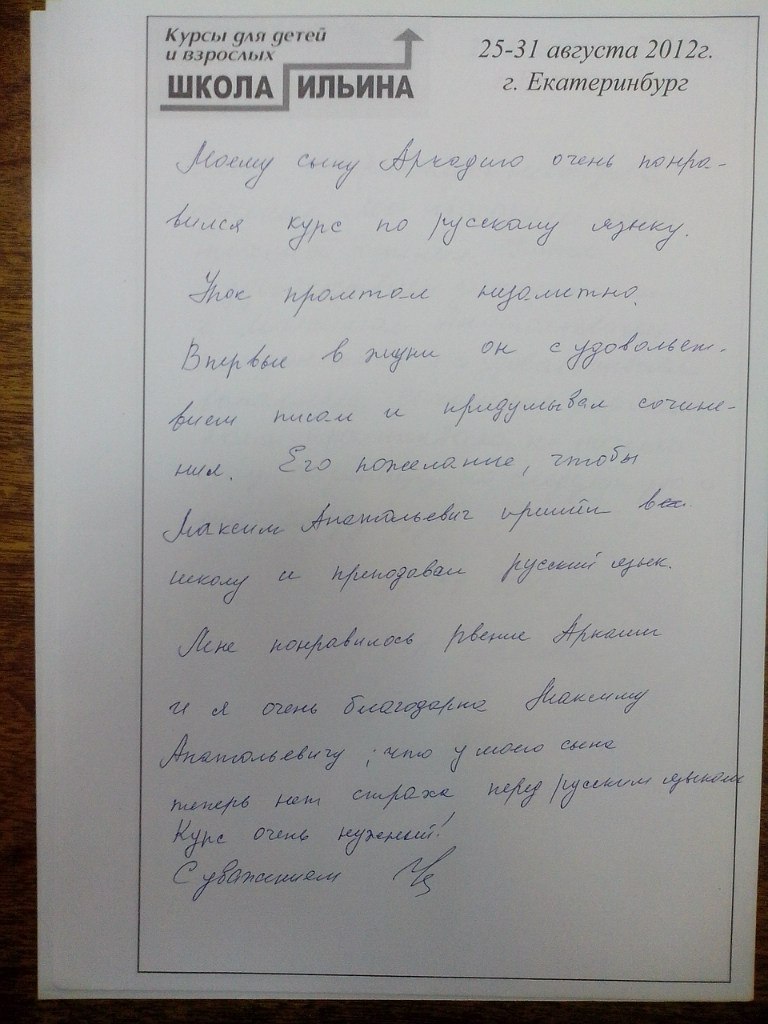 Курсы для детей
и взрослых
ШКОЛА ИЛЬИНА
25-31 августа 2012г.
г. Екатеринбург
Моему сыну Аркадию очень понра-
вился курс по русскому языку.
Урок пролетал незаметно.
Впервые в жизни он с удовольст-
вием писал и придумывал сочине-
ния. Его пожелание, чтобы
Максим Анатольевич пришёл в
школу и преподавал русский язык.
Мне понравилось рвение Аркаши
и я очень благодарна Максиму
Анатольевичу, что у моего сына
теперь нет страха перед русским языком
Курс очень нужный!
С уважением